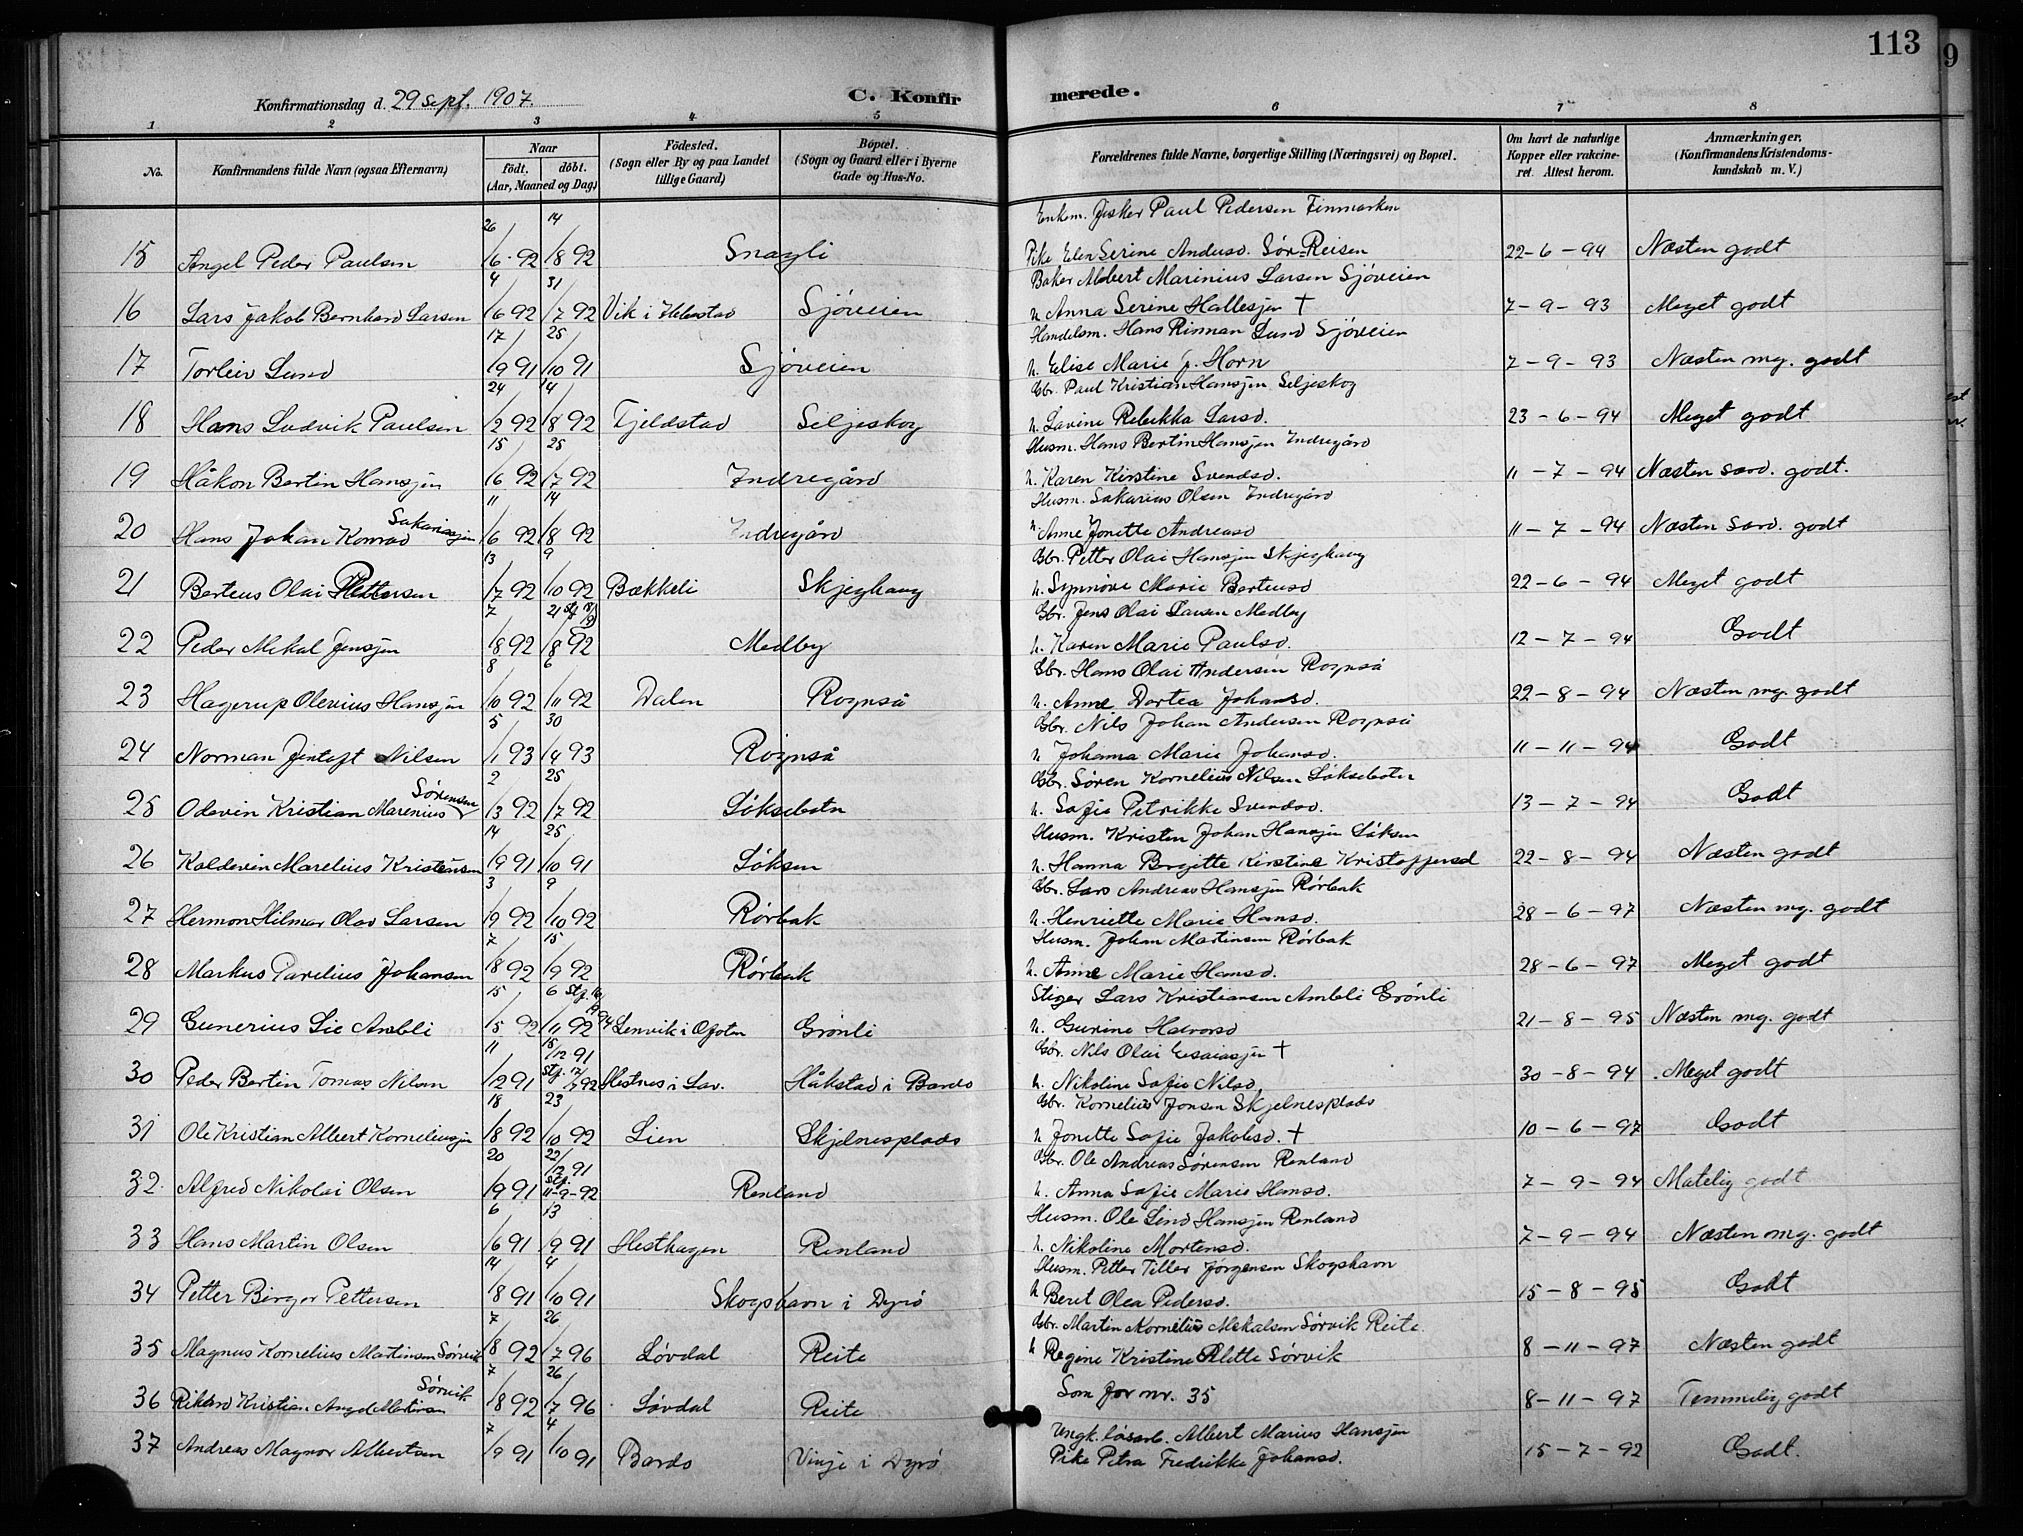 113
9
Konfirmationsdag d. 29 sept. 1907. C. Konfirmerede.
1 2 3 4 5 6 7 8
No. Konfirmandens fulde Navn (ogsaa Efternavn) Naar født. døbt. (Aar, Maaned og Dag) Födested. (Sogn eller By og paa Landet tillige Gaard) Bopæl. (Sogn og Gaard eller i Byerne Gade og Hus-No. Forældrenes fulde Navne, borgerlige Stilling (Næringsvei) og Bopæl. Om havt de naturlige Kopper eller vakcineret. Attest herom. Anmærkninger, (Konfirmandens Kristendomskundskab m. V.)
Enkem. Fisker Paul Pedersen Finmarken
15 Angel Peder Paulsen 26/6 92 14/8 92 Snagli Pike Elen Serine Andersd. Sør-Reisen 22-6-94 Næsten godt
Baker Albert Marinius Larsen Sjøveien
16 Lars Jakob Bernhard Larsen 4/6 92 31/7 92 Vik i Sjøveien h. Anna Serine Hallesjen † 7-9-93 Meget godt
Handelsm. Hans Rinman Lund Sjøveien
17 Torleiv Lund 17/9 91 25/10 91 Sjøveien h. Elise Marie f. Horn 7-9-93 Næsten mg. godt
Gbr. Paul Kristian Hansjen Seljeskog
18 Hans Ludvik Paulsen 24/2 92 14/8 92 Fjeldstad Seljeskog h. Lavine Rebekka Larsd. 23-6-94 Meget godt
Husm. Hans Bertin Hansjen Indregård
19 Håkon Bertin Hansjen 15/6 92 25/7 92 Indregård h. Karen Kirstine Svendsd. 11-7-94 Næsten særd. godt.
Husm. Sakarias Olsen Indregård
20 Hans Johan Konrad Sakariasjen 11/6 92 14/8 92 Indregård h. Anne Jonette Andreasd 11-7-94 Næsten særd. godt
Gbr. Petter Olai Hansjen Skjeghaug
21 Berteus Olai Pettersen 13/7 92 9/10 92 Bækkeli Skjeghaug h. Synnøve Marie Berteusd 22-6-94 Meget godt
Gbr. Jens Olai Larsen Medby
22 Peder Mekal Jensjen 7/8 92 21/8 92 Medby h. Karen Marie Paulsd. 12-7-94 Godt
Gbr. Hans Olai Andersen Rognså
23 Hagerup Olevius Hansjen 8/10 92 6/11 92 Dalen Rognså h. Anne Dortea Johansd. 22-8-94 Næsten mg. godt
Gbr. Nils Johan Andersen Rognså
24 Norman Jentoft Nilsen 5/1 93 30/4 93 Rognså h. Johanna Marie Johansd. 11-11-94 Godt
Gbr. Søren Kornelius Nilsen Løksebotn
25 Odevin Kristian Marenius Sørensen 2/13 92 25/7 92 Løksebotn h. Sofie Petrikke Svendsd. 13-7-94 Godt
Husm. Kristen Johan Hansjen Løksen
26 Koldevin Marelius Kristensen 14/9 91 25/10 91 Løksen h. Hanna Brgitte Kirstine Kristoffersd 22-8-94 Næsten godt
Gbr. Lars Andreas Hansjen Rørbak
27 Hermon Hilmar Olav Larsen 3/9 92 9/10 92 Rørbak h. Henriette Marie Hansd. 28-6-97 Næsten mg. godt
Husm. Johan Martinsen Rørbak
28 Markus Parelius Johansen 7/8 92 15/9 92 Rørbak h. Anne Marie Hansd. 28-6-97 Meget godt
Stiger Lars Kristiansen Ambli Grønli
29 Gunerius Lie Ambli 15/5 92 6/11 92 Stf. Lenvik i Ofoten Grønli h. Gurine Halvorsd 21-8-95 Næsten mg. godt
Gbr. Nils Olai Esaiasjen †
30 Peder Bertin Tomas Nilsen 11/12 91 15/12 91 Stf. 12/7 92 Hestnes i Lav. Håkstad i Bardo h. Nikoline Sofie Nilsd. 30-8-94 Meget godt
Gbr. Kornelius Jonsen Skjelnesplads
31 Ole Kristian Albert Korneliusjen 18/8 92 23/10 92 Lien Skjelnesplads h. Jonette Sofie Jakobsd. † 10-6-97 Godt
Gbr. Ole Andreas Sørensen Renland
32 Alfred Nikolai Olsen 20/9 91 22/12 91 Stf. 11-9-92 Renland h. Anna Sofie Marie Hansd. 7-9-94 Måtelig godt
Husm. Ole Lind Hansjen Renland
33 Hans Martin Olsen 6/6 91 13/9 91 Hesthagen Renland h. Nikoline Mortensd. 7-9-94 Næsten mg. godt
Husm. Petter Tiller Jørgensen Skogshavn
34 Petter Birger Pettersen 14/8 91 4/10 91 Skogshavn i Dyrø h Beret Olea Pedersd. 15-8-95 Godt
Gbr. Martin Kornelius Mekalsen Sørvik Reite.
35 Magnus Kornelius Martinsen Sørvik 7/8 92 26/7 96 Løvdal Reite h Regine Kristine Sørvik 8-11-97 Næsten godt
36 Rikard Kristian Angel Martinsen Sørvik 7/8 92 26/7 96 Løvdal Reite Som for nr. 35 8-11-97 Temmelig godt
Ungk. løsarb. Albert Marius Hansjen
37 Andreas Magnor Albertsen 7/9 91 4/10 91 Bardo Vinje i Dyrø Pike Petra Fredrikke Johansd. 15-7-92 Godt.